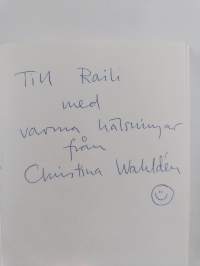 Till Raili
med
varma hälsningar
från
Christina Wahldén